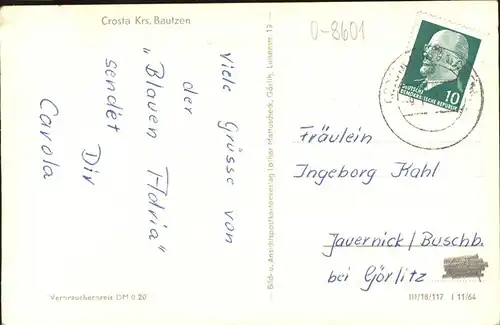 Crosta Krs. Bautzen
Viele Grüsse von
der
„Blauen Adria"
sendet Dir
Carola
Verbraucherpreis DM 0.20
Bild- u. Ansichtspostkartenverlag Lothar Mattuscheck, Görlitz, Luisenstr. 13
0-8601
DEUTSCHE
DEMOKRATISCHE REPUBLIK
10
Fräulein
Ingeborg Kahl
Jauernick/Buschb.
bei Görlitz
III/18/117 J 11/64